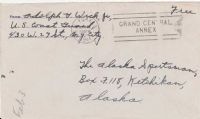 FROM Adolph F. Wirch Jr.
U.S. Coast Guard,
430 W. 27 St., NY City
Free
GRAND CENTRAL
ANNEX
The Alaska Sportsman,
Box 7118, Ketchikan,
Alaska
Feb 3